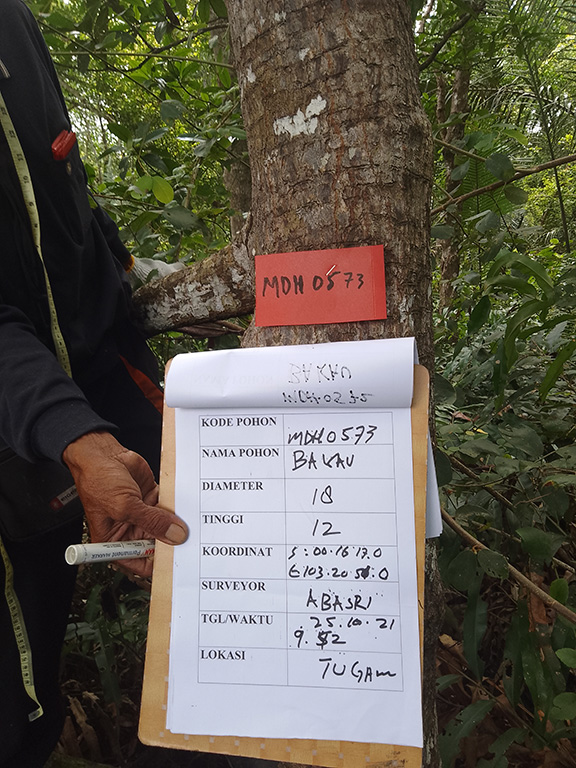 MDH 0573
BAKAU
KODE POHON MDH 0573
NAMA POHON BAKAU
DIAMETER 18
TINGGI 12
KOORDINAT S:00.16.17.0
E103.20.51.0
SURVEYOR ABASRI
TGL/WAKTU 25.10.21
9.52
LOKASI TUGAM
Permanent MARKER